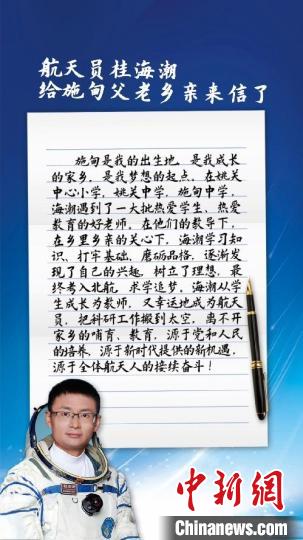 航天员桂海潮
给施甸父老乡亲来信了
施甸是我的出生地，是我成长
的家乡，是我梦想的起点。在姚关
中心小学，姚关中学，施甸中学，
海潮遇到了一大批热爱学生、热爱
教育的好老师。在他们的教导下，
在乡里乡亲的关心下，海潮学习知
识、打牢基础、磨砺品格，逐渐发
现了自己的兴趣，树立了理想，最
终考入北航，求学追梦。海潮从学
生成长为教师，又幸运地成为航天
员，把科研工作搬到太空，离不开
家乡的哺育、教育，源于党和人民
的培养，源于新时代提供的新机遇，
源于全体航天人的接续奋斗！
中新网
Chinanews.com